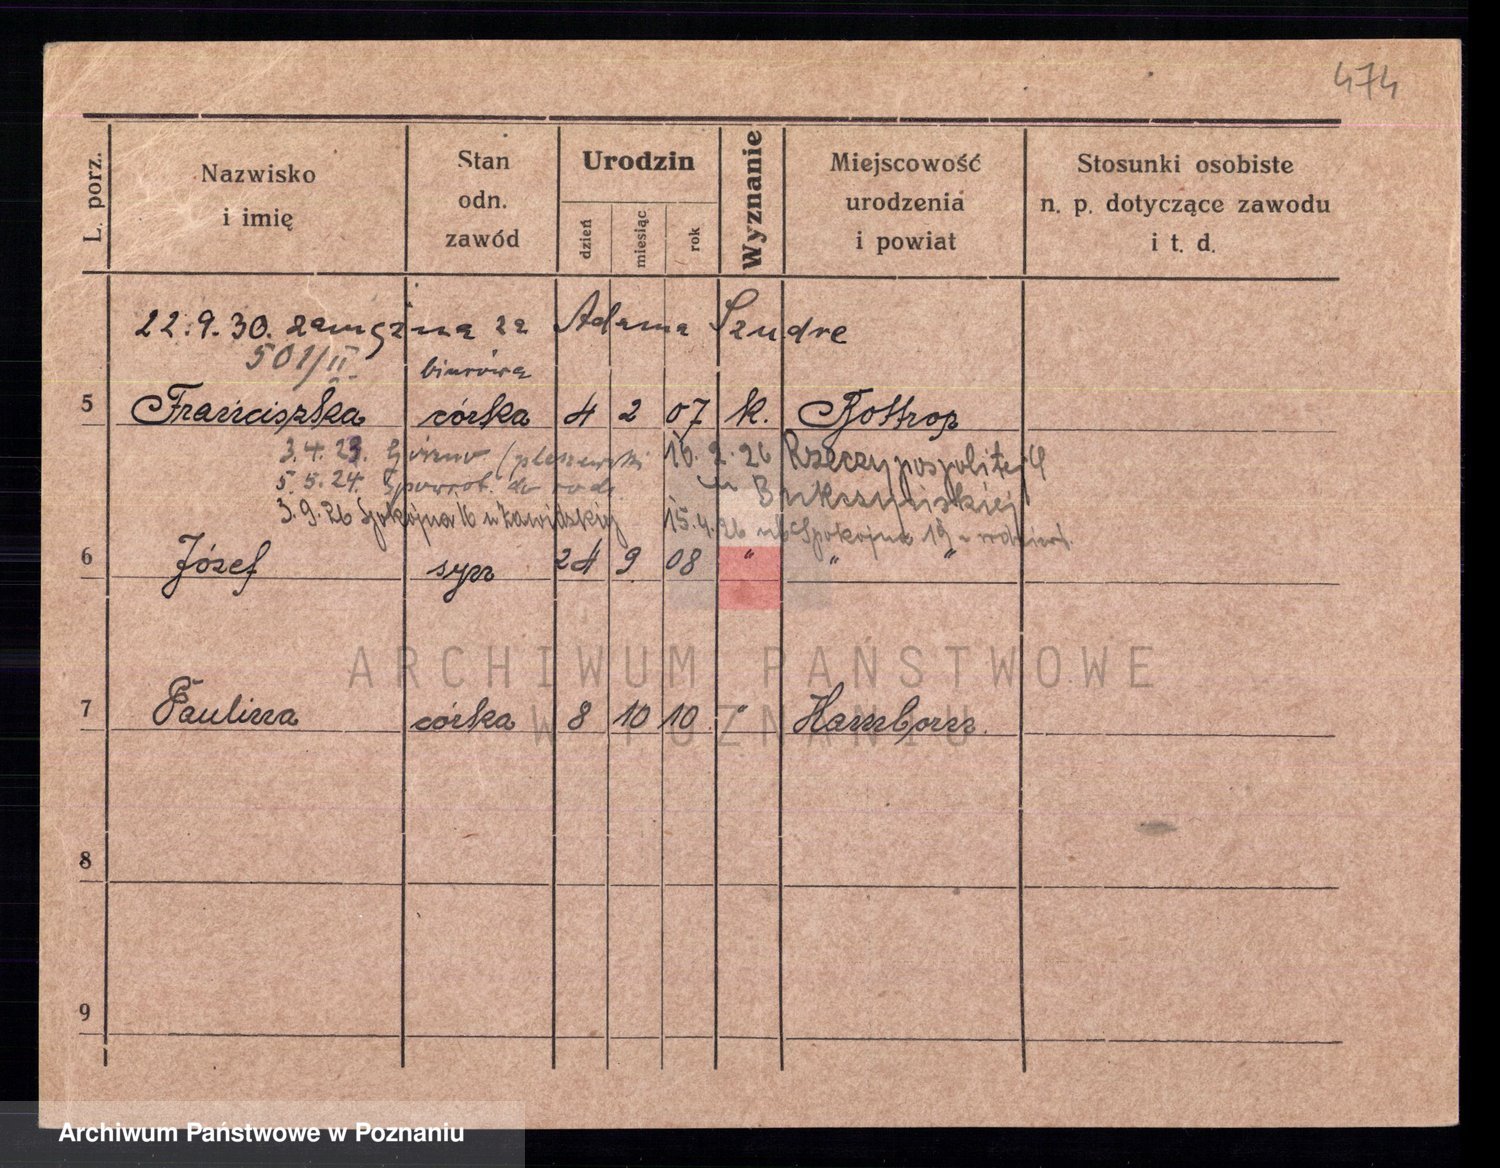 474
L. porz.
Nazwisko
i imię
Stan
odn.
zawód
Urodzin
dzień
miesiąc
rok
Wyznanie
Miejscowość
urodzenia
i powiat
Stosunki osobiste
n. p. dotyczące zawodu
i t. d.
22.9.30. zamężna za Adama Szudre
501/II
biurowa
5 Franciszka córka 4 2 07 k. Bottrop
3.4.23.
16.2.26 Rzeczypospolitej 4
5.5.24. do rodz.
u
3.9.26 Spokojna 16 u
15.4.26 Spokojna 19
6 Józef syn 24 9 08 " " "
ARCHIWUM PAŃSTWOWE
W POZNANIU
7 Paulina córka 8 10 10 " Hamborn.
8
9
Archiwum Państwowe w Poznaniu